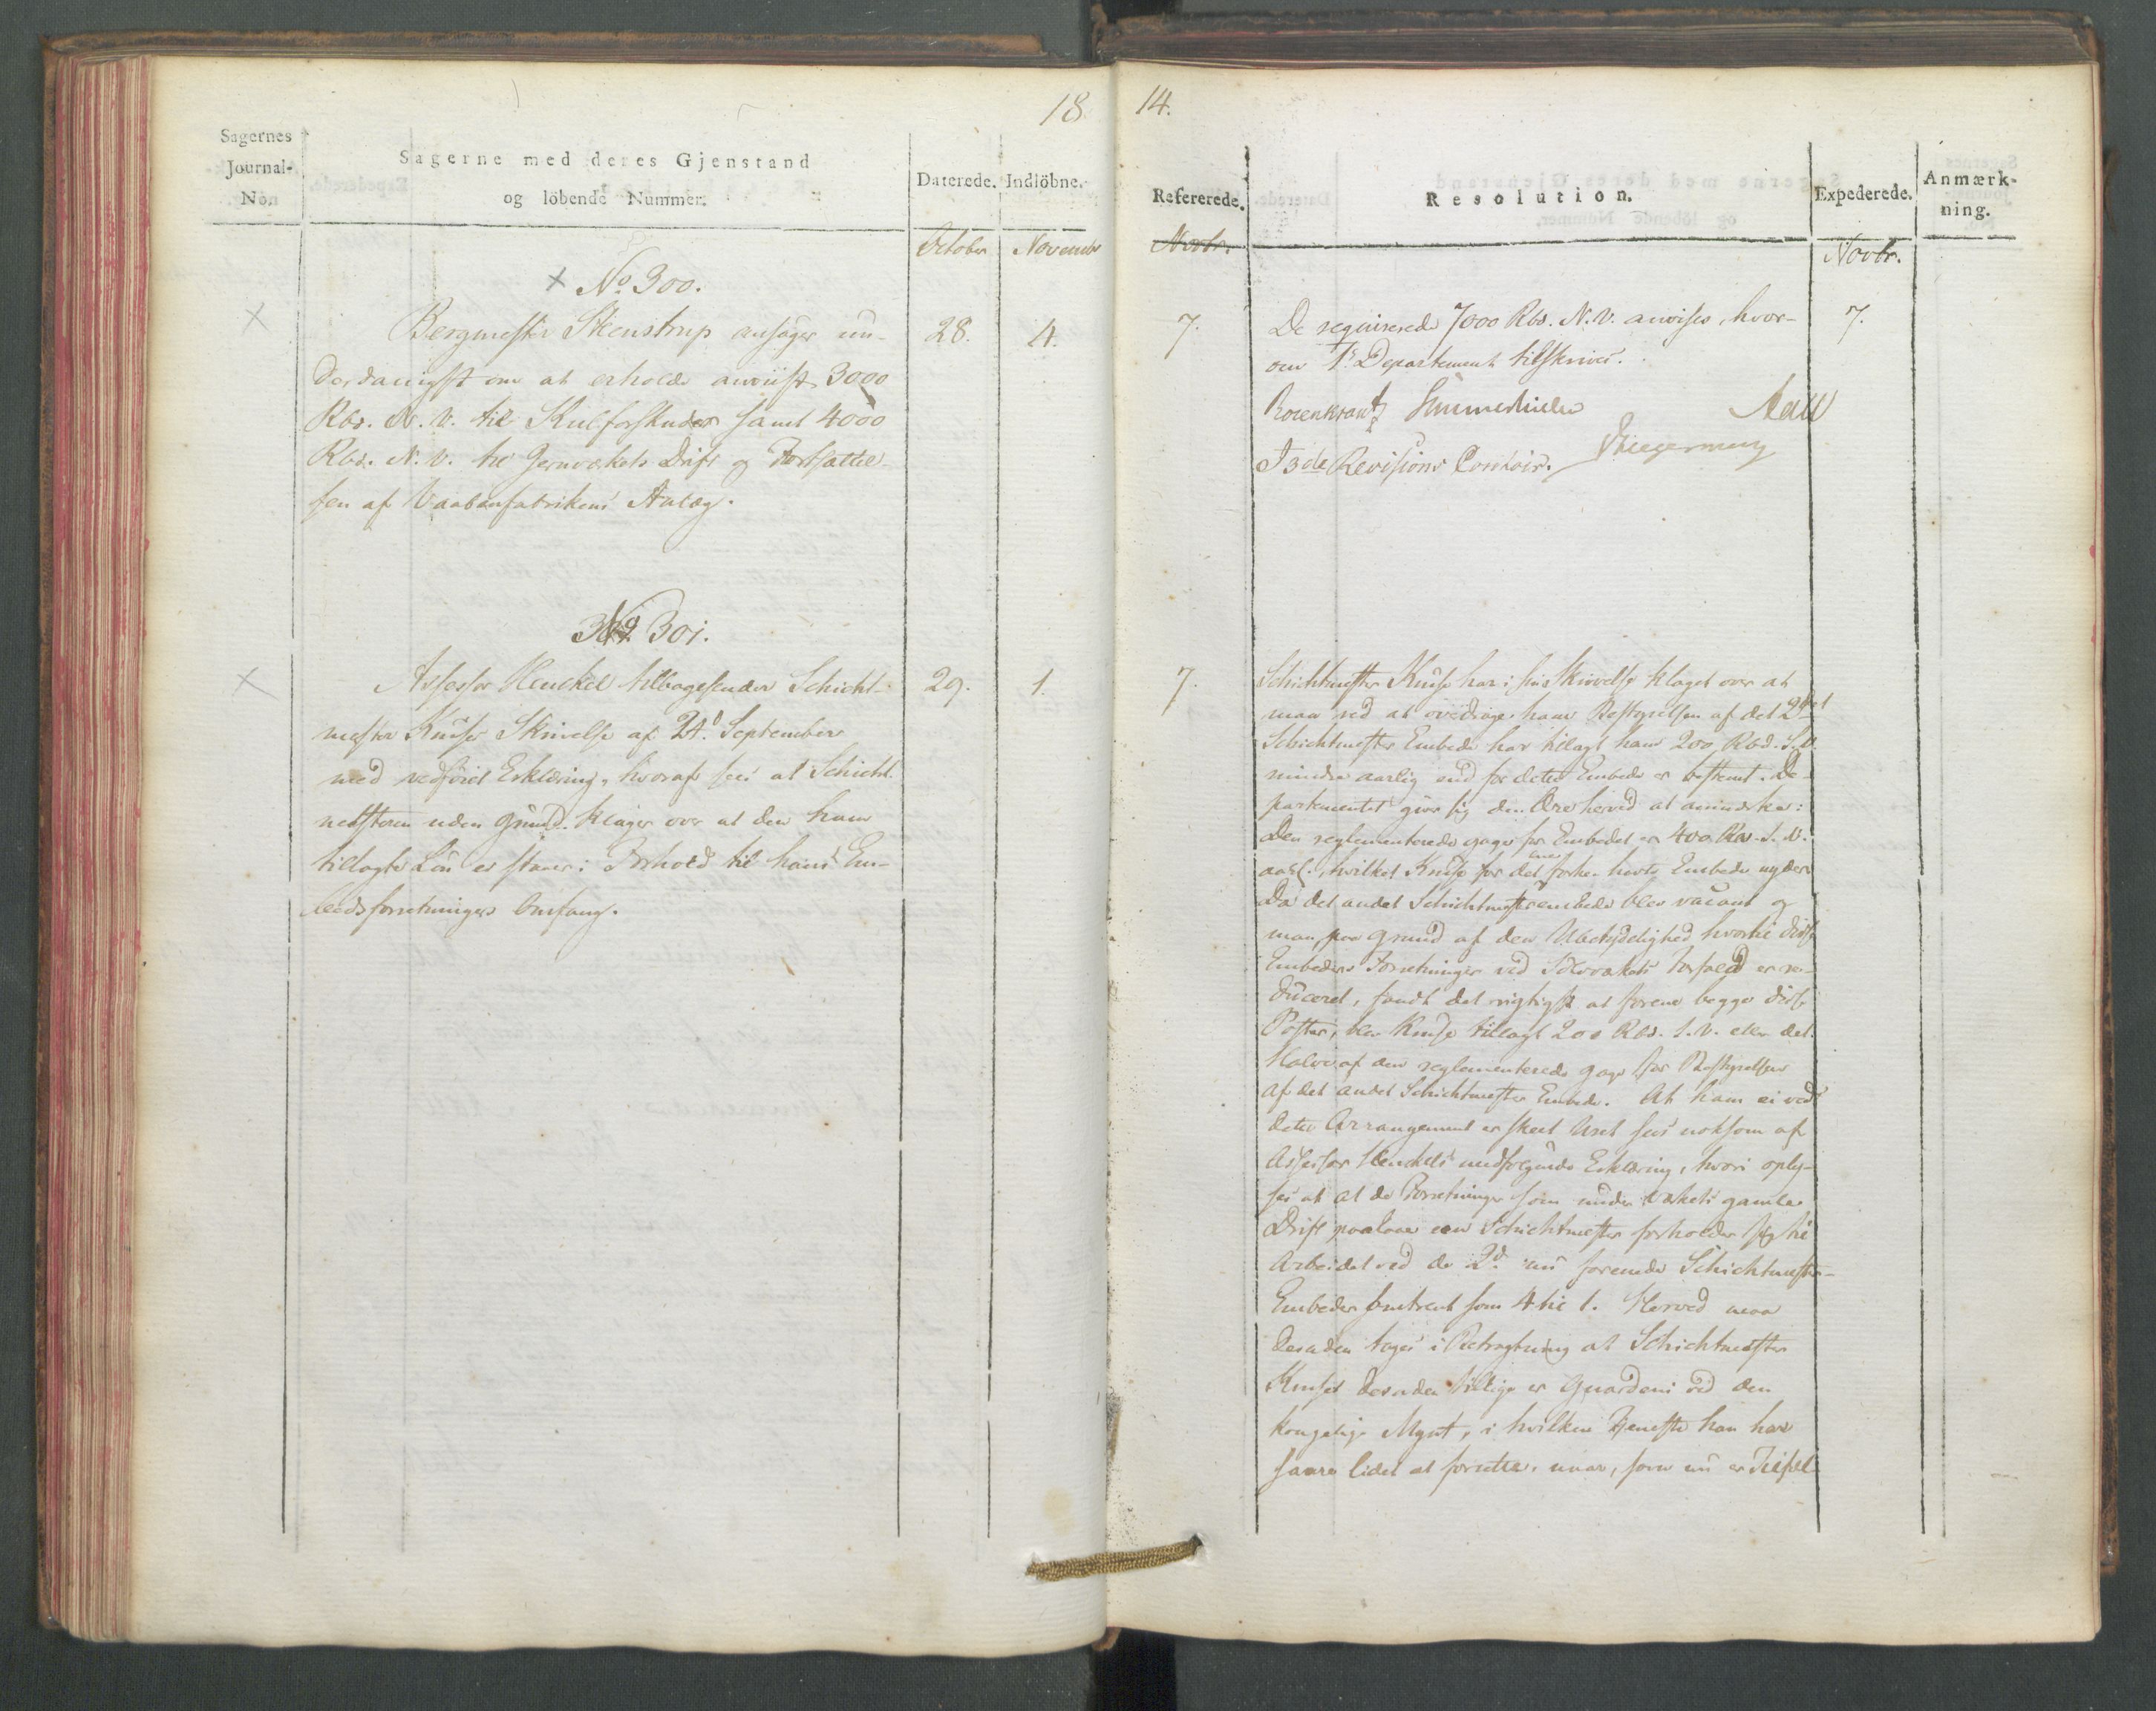 18
Sagernes
Journal-
No.
Sagerne med deres Gjenstand
og löbende Nummer.
Daterede.
Indlöbne.
October
November
× No 300.
×
Bergmester Steenstrup ansøger un-
derdanigst om at erholde anviist 3000
Rbd. N. V. til Kulforskuder samt 4000
Rbd. N. V. til Jernværkets Drift og Fortsættel-
sen af Vaabenfabrikens Anlæg.
28.
4.
No 301.
×
Assessor Henckel tilbagesender Schicht-
mester Knuses Skrivelse af 24. September
med vedføiet Erklæring, hvoraf sees at Schicht-
mesteren uden Grund klager over at den ham
tillagte Løn er staaer i Forhold til hans Em-
bedsforretningers Omfang.
29.
1.
14.
Refererede.
Resolution.
Expederede.
Anmærk-
ning.
Novbr.
Novbr.
7.
De reqvirerede 7000 Rbd. N. V. anvises, hvor-
om 1ste Departement tilskrives.
Rosenkrantz Sommerhielm Aall
I 3de Revisions Contoir.
7.
7.
Schichtmester Knuse har i sin Skrivelse klaget over at
man ved at overdrage ham Bestyrelsen af det 2det
Schichtmester Embede har tillagt ham 200 Rbd. S. V.
mindre aarlig end for dette Embede er bestemt. De-
partementet giver sig den Ære herved at anmærke:
Den reglementerede Gage for Embedet er 400 Rbd. S. V.
aarl. hvilket Knuse for det forhen havte Embede nyder.
Da det andet Schichtmesterembede blev vacant og
man paa Grund af den Ubetydelighed hvortil disse
Embeders Forretninger ved Sølvværkets Forfald er re-
duceret, fandt det rigtigst at forene begge disse
Poster, blev Knuse tillagt 200 Rbd. S. V. eller det
Halve af den reglementerede Gage for Bestyrelsen
af det andet Schichtmester Embede. At ham ei ved
dette Arrangement er skeet Uret sees noksom af
Assessor Henckels medfølgende Erklæring, hvori oply-
ses at at de Forretninger som under Værkets gamle
Drift paalaae een Schichtmester forholder sig til
Arbeidet ved de 2de nu forenede Schichtmester-
Embeder omtrent som 4 til 1. Herved maa
desuden tages i Betragtning at Schichtmester
Knuse desuden tillige er Guardein ved den
kongelige Mynt, i hvilken Tjeneste han har
saare lidet at forrette, naar, som nu er Tilfæl-